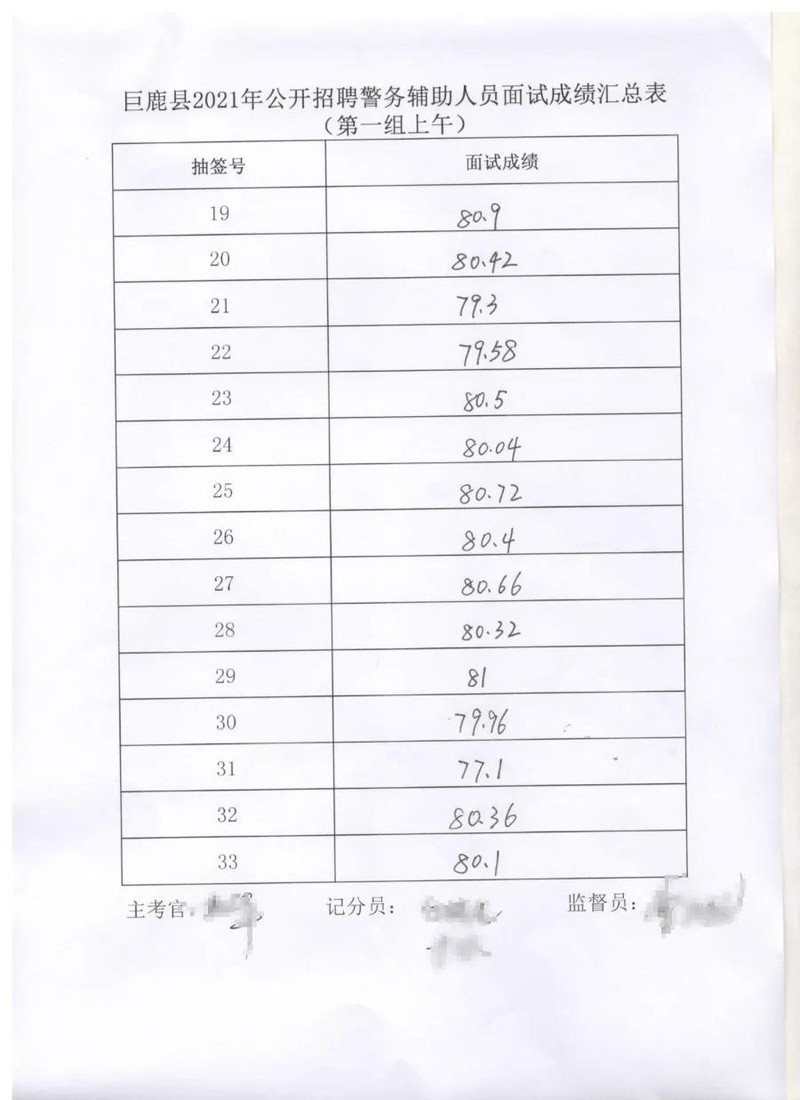 巨鹿县2021年公开招聘警务辅助人员面试成绩汇总表
（第一组上午）
抽签号 面试成绩
19 80.9
20 80.42
21 79.3
22 79.58
23 80.5
24 80.04
25 80.72
26 80.4
27 80.66
28 80.32
29 81
30 79.96
31 77.1
32 80.36
33 80.1
主考官 记分员： 监督员：